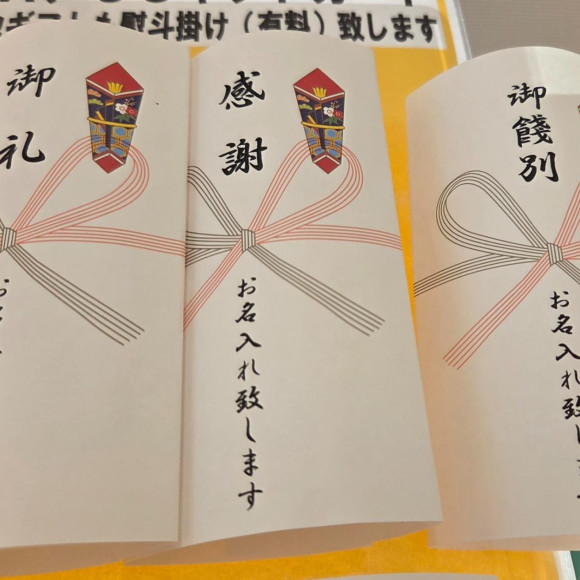 熨斗掛け（有料）致します
御礼
感謝
お名入れ致します
御餞別
お名入れ致します